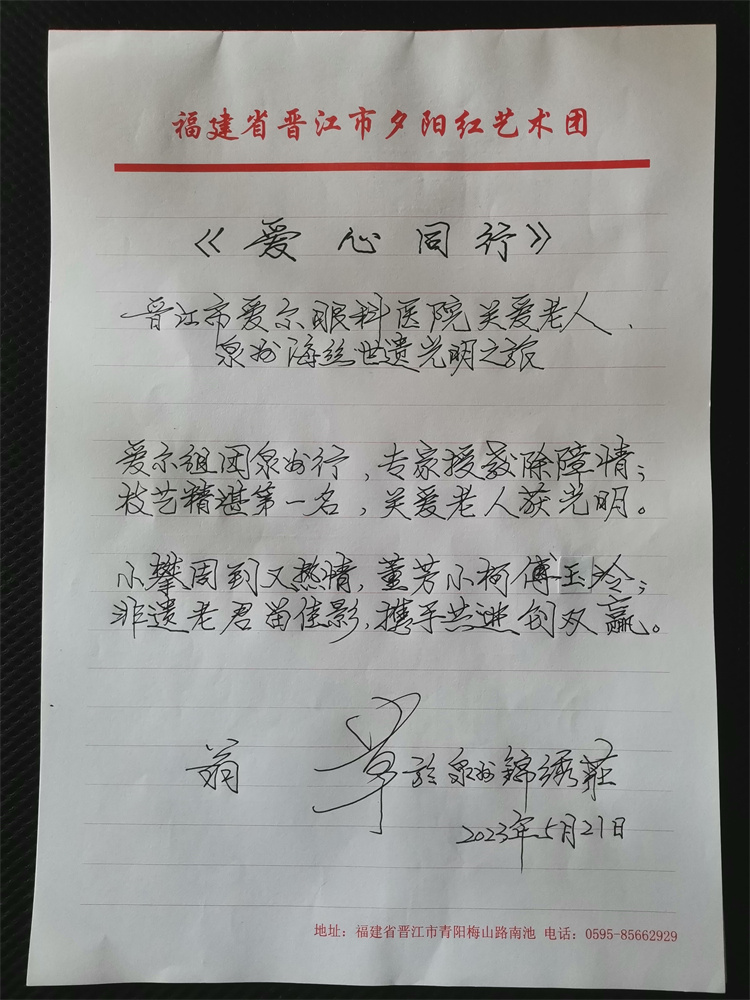 福建省晋江市夕阳红艺术团
《爱心同行》
晋江市爱尔眼科医院关爱老人、
泉州海丝世遗光明之旅
爱尔组团泉州行，专家授教除障情；
技艺精湛第一名，关爱老人获光明。
小攀周到又热情，董芳小柯傅玉玲；
非遗老君留佳影，携手共进创双赢。
翁 草 於泉州锦绣莊
2023年5月21日
地址：福建省晋江市青阳梅山路南池 电话：0595-85662929